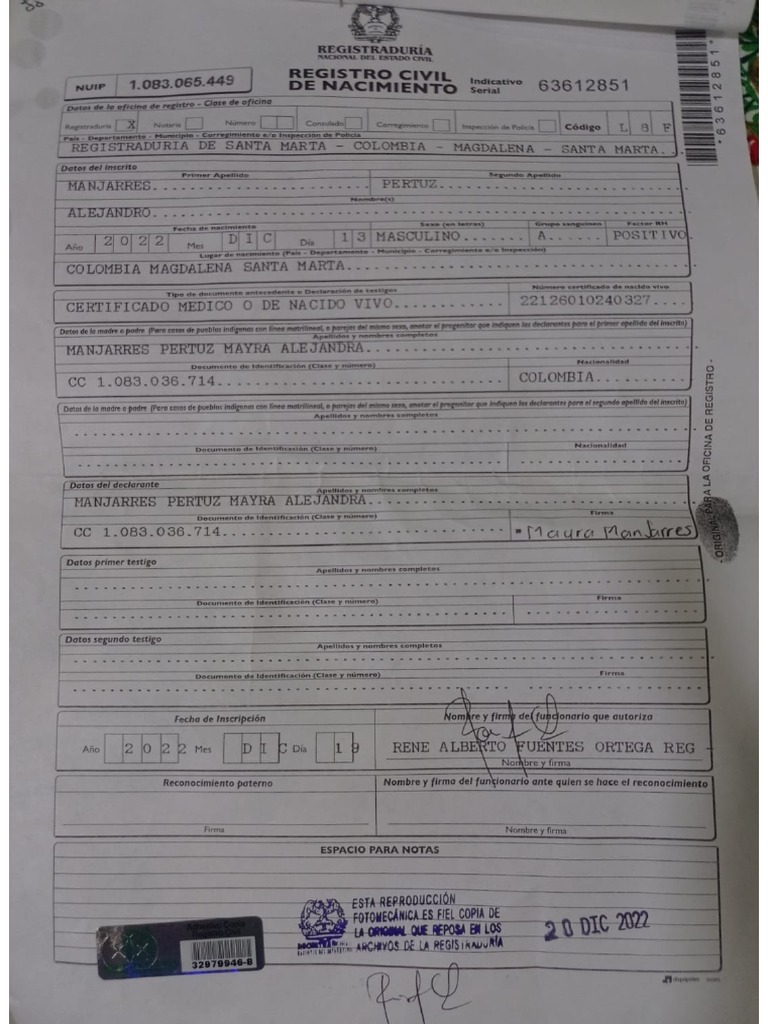 REGISTRADURÍA
NACIONAL DEL ESTADO CIVIL
NUIP 1.083.065.449
REGISTRO CIVIL
DE NACIMIENTO
Indicativo
Serial
63612851
*63612851*
Datos de la oficina de registro - Clase de oficina
Registraduría X Notaría Número Consulado Corregimiento Inspección de Policía Código L 8 F
País - Departamento - Municipio - Corregimiento e/o Inspección de Policía
REGISTRADURIA DE SANTA MARTA - COLOMBIA - MAGDALENA - SANTA MARTA...
Datos del inscrito
Primer Apellido Segundo Apellido
MANJARRES........................ PERTUZ........................
Nombre(s)
ALEJANDRO........................
Fecha de nacimiento Sexo (en letras) Grupo sanguíneo Factor RH
Año 2022 Mes DIC Día 13 MASCULINO....... A...... POSITIVO
Lugar de nacimiento (País - Departamento - Municipio - Corregimiento e/o Inspección)
COLOMBIA MAGDALENA SANTA MARTA........................
Tipo de documento antecedente o Declaración de testigos Número certificado de nacido vivo
CERTIFICADO MEDICO O DE NACIDO VIVO............ 22126010240327....
Datos de la madre o padre (Para casos de pueblos indígenas con línea matrilineal, o parejas del mismo sexo, anotar el progenitor que indiquen los declarantes para el primer apellido del inscrito)
Apellidos y nombres completos
MANJARRES PERTUZ MAYRA ALEJANDRA........................
Documento de Identificación (Clase y número) Nacionalidad
CC 1.083.036.714........................ COLOMBIA.........
Datos de la madre o padre (Para casos de pueblos indígenas con línea matrilineal, o parejas del mismo sexo, anotar el progenitor que indiquen los declarantes para el segundo apellido del inscrito)
Apellidos y nombres completos
Documento de Identificación (Clase y número) Nacionalidad
Datos del declarante
Apellidos y nombres completos
MANJARRES PERTUZ MAYRA ALEJANDRA........................
Documento de Identificación (Clase y número) Firma
CC 1.083.036.714........................ Mayra Manjarres
- ORIGINAL PARA LA OFICINA DE REGISTRO -
Datos primer testigo
Apellidos y nombres completos
Documento de Identificación (Clase y número) Firma
Datos segundo testigo
Apellidos y nombres completos
Documento de Identificación (Clase y número) Firma
Fecha de Inscripción Nombre y firma del funcionario que autoriza
Año 2022 Mes DIC Día 19 RENE ALBERTO FUENTES ORTEGA REG -
Nombre y firma
Reconocimiento paterno Nombre y firma del funcionario ante quien se hace el reconocimiento
Firma Nombre y firma
ESPACIO PARA NOTAS
ESTA REPRODUCCIÓN
FOTOMECÁNICA ES FIEL COPIA DE
LA ORIGINAL QUE REPOSA EN LOS
ARCHIVOS DE LA REGISTRADURÍA
20 DIC 2022
32979946-8